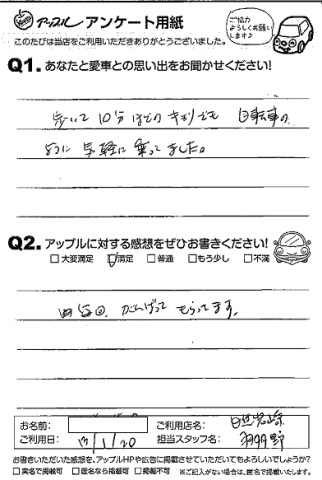 アップル アンケート用紙
ご協力
よろしくお願い
します♪
このたびは当店をご利用いただきありがとうございました。
Q1. あなたと愛車との思い出をお聞かせください!
歩いて10分ほどのキョリでも 自転車の
ように気軽に乗ってました。
Q2. アップルに対する感想をぜひお書きください!
□大変満足 ☑満足 □普通 □もう少し □不満
毎回、がんばってもらってます。
お名前:
ご利用店名:
ご利用日: 13/1/20
担当スタッフ名:
お書きいただいた感想を、アップルHPや広告に掲載させていただいてもよろしいでしょうか?
□実名で掲載可 □匿名なら掲載可 □掲載不可 ※ご記入がない場合は、匿名で掲載いたします。